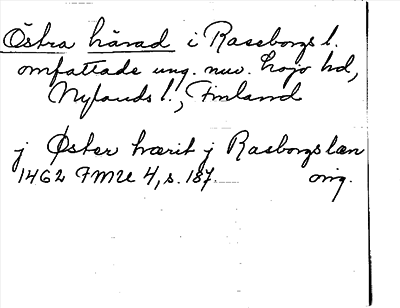 Östra härad i Raseborgs l.
omfattade ung. nuv. Lojo hd,
Nylands l., Finland
j Øster hærit j Rasborgs læn
1462 FMU 4, s. 187. orig.